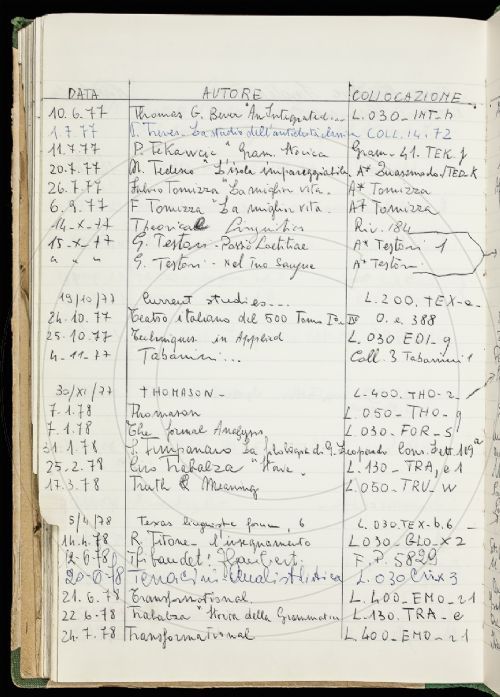 DATA AUTORE COLLOCAZIONE
10.6.77 Thomas G. Bever "An Integrated... L.030-INT-h
1.7.77 P. Treves - Lo studio dell'antichità classica COLL.14.72
11.7.77 P. Tekavcic "Gram. storica Gram-41.TEK.f
20.7.77 M. Tedeno "L'isola impareggiabile A* Quasimodo/TED.K
26.7.77 Fulvio Tomizza "La miglior vita. A* Tomizza
6.9.77 F Tomizza "La miglior vita. A* Tomizza
14-X-77 Theoretical Linguistics Riv. 184
15.X-77 G. Testori. Passio Laetitiae A* Testori 1
" " " G. Testori. - Nel Tuo Sangue A* Testori
19/10/77 Current studies... L.200.TEX-a-
24.10.77 Teatro italiano del 500 Tomo I°- IV O.e.388
25.10.77 Techniques in Applied L.030 EDI-g
4-11.77 Tabarrini... Coll.3 Tabarrini 1
30/XI/77 THOMASON- L-400.THO-2-
7.1.78 Thomason L.050-THO-g
7.1.78 The formal Analysis L.030.FOR-S
31.1.78 S. Timpanaro La filologia di G. Leopardi Cons. Lett. 119a
25.2.78 Ciro Trabalza "Storia... L.130-TRA, e1
17.3.78 Truth & Meaning L.050-TRU-w
5/4/78 Texas linguistic forum, 6 L.030.TEX-b.6-
14.4.78 R. Titone - l'insegnamento L030-GLO-x2
12-6-78 Thibaudet: Flaubert F.P.5829
20-6-78 Terracini L.030
21.6.78 Transformational L.400-EMO-21
22.6-78 Trabalza "Storia della Grammatica L.130.TRA-e
24.7.78 Transformational L.400-EMO-21